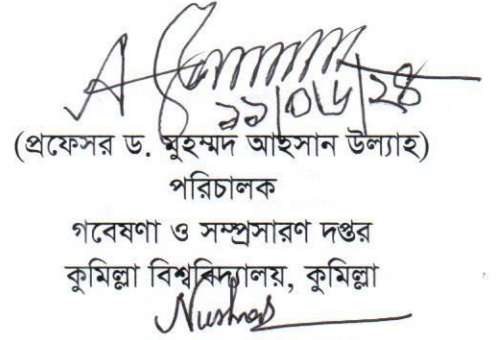 ১১/০৬/২৪
(প্রফেসর ড. মুহম্মদ আহসান উল্যাহ)
পরিচালক
গবেষণা ও সম্প্রসারণ দপ্তর
কুমিল্লা বিশ্ববিদ্যালয়, কুমিল্লা